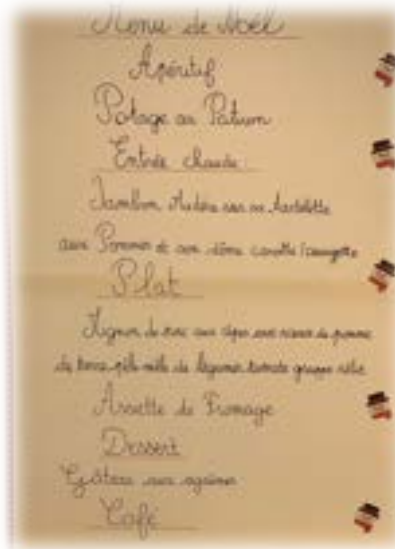 Menu de Noël
Apéritif
Potage au Potiron
Entrée chaude :
Jambon Madère sur sa tartelette
aux Pommes et son dôme carotte/courgette
Plat
Mignon de porc aux cèpes avec rösti de pomme
de terre, pêle-mêle de légumes, tomate grappe rôtie
Assiette de Fromage
Dessert
Gâteau aux agrumes
Café